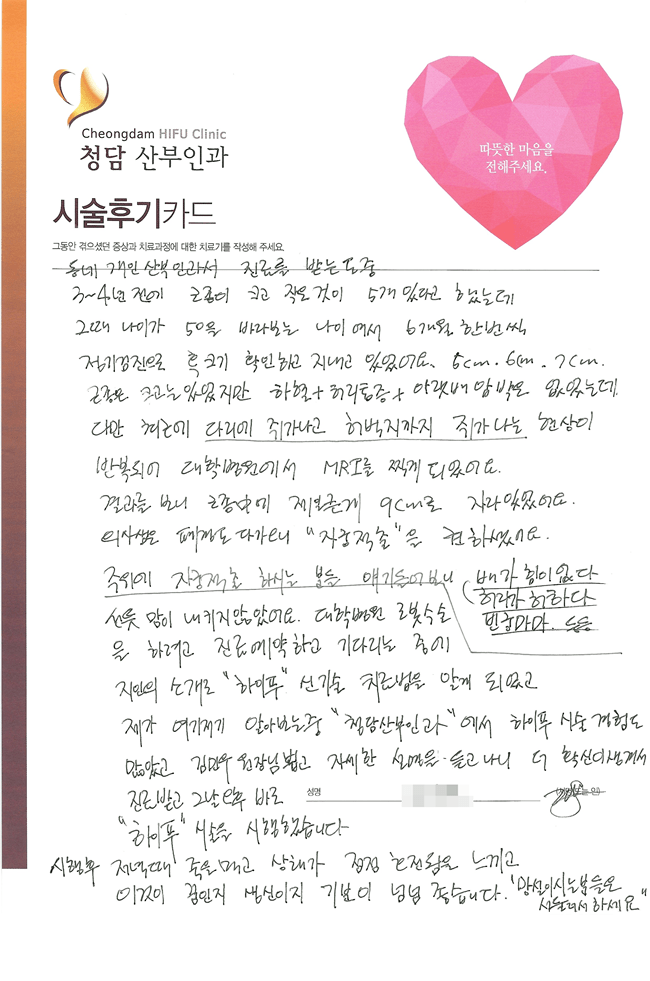 Cheongdam HIFU Clinic
청담 산부인과
따뜻한 마음을
전해주세요.
시술후기카드
그동안 겪으셨던 증상과 치료과정에 대한 치료기를 작성해 주세요.
동네 개인 산부인과서 진료를 받는 도중
3~4년 전에 근종이 크고 작은것이 5개 있다고 했는데
그때 나이가 50을 바라보는 나이여서 6개월 한번씩
정기검진으로 혹 크기 확인하고 지내고 있었어요. 5cm. 6cm. 7cm.
근종은 크고는 있었지만 하혈+허리통증+아랫배 압박은 없었는데
다만 최근에 다리에 쥐가나고 허벅지까지 쥐가 나는 현상이
반복되어 대학병원에서 MRI를 찍게 되었어요.
결과를 보니 근종中에 제일큰게 9cm로 자라있었어요.
의사샘은 폐경도 다가오니 "자궁적출"을 권하셨어요.
주위에 자궁적출 하시는 분들 얘기들어보니
배가 힘이없다
허리가 허하다
빈궁마마. 등등
선뜻 맘이 내키지않았어요. 대학병원 로봇수술
을 하려고 진료예약하고 기다리는 중에
지인의 소개로 "하이푸" 신기술 치료법을 알게 되었고
제가 여기저기 알아보는중 "청담산부인과"에서 하이푸 시술 경험도
많았고 원장님 뵙고 자세한 설명을 듣고나니 더 확신이생겨서
진료받고 그날오후 바로
성명
"하이푸" 시술을 시행했습니다
시행후 저녁때 죽을먹고 상태가 점점 호전됨을 느끼고
이것이 꿈인지 생신이지 기분이 넘넘 좋습니다. "망설이시는분들은
서둘러서 하세요"